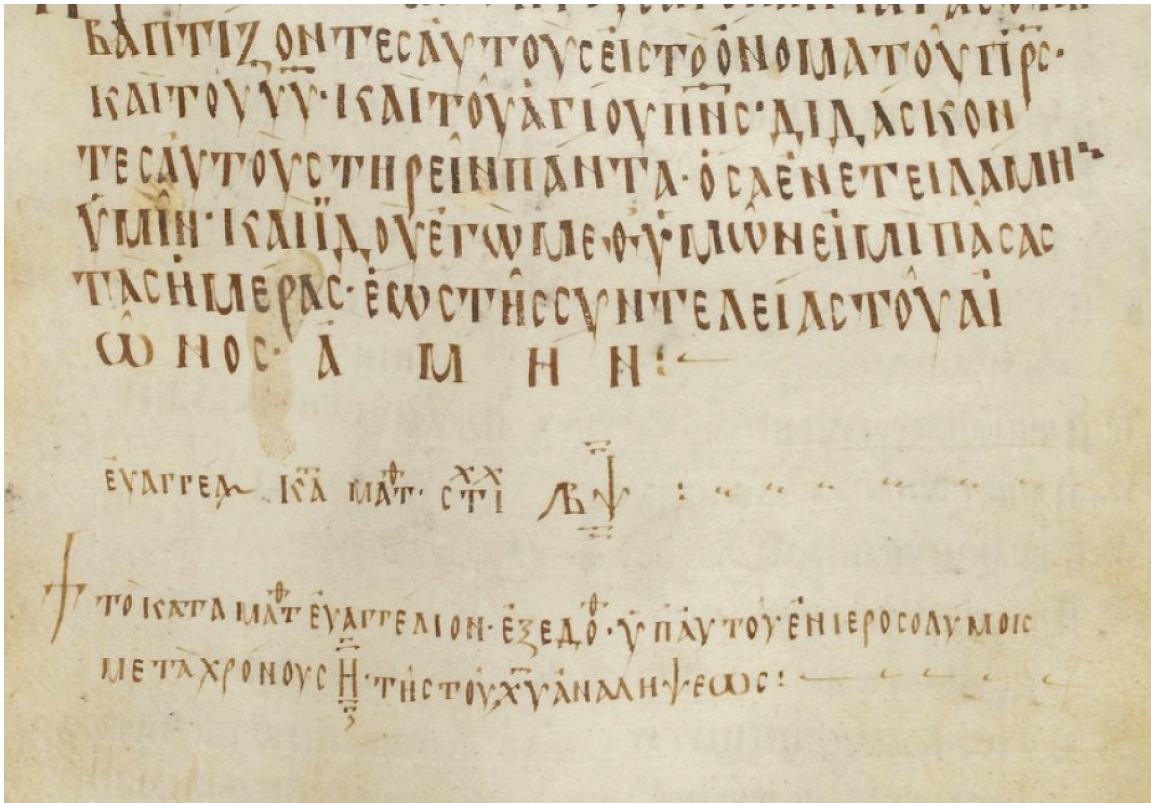 βαπτίζοντες αὐτοὺς εἰς τὸ ὄνομα τοῦ πρς·
καὶ τοῦ υυ· καὶ τοῦ ἁγίου πνς· διδάσκον
τες αὐτοὺς τηρεῖν πάντα· ὅσα ἐνετειλάμην
ὑμῖν· καὶ ἰδοὺ ἐγὼ μεθ ὑμῶν εἰμὶ πάσας
τὰς ἡμέρας· ἕως τῆς συντελείας τοῦ αἰ
ῶνος· ἀμήν:
ἐυαγγελ κατ ματθ· στιχχ ͵βψ:
τὸ κατὰ ματθ ἐυαγγέλιον· ἐξεδόθ· ὑπ αὐτοῦ ἐν ιεροσολύμοις
μετὰ χρόνους η· τῆς τοῦ χυ ἀναλήψεως: